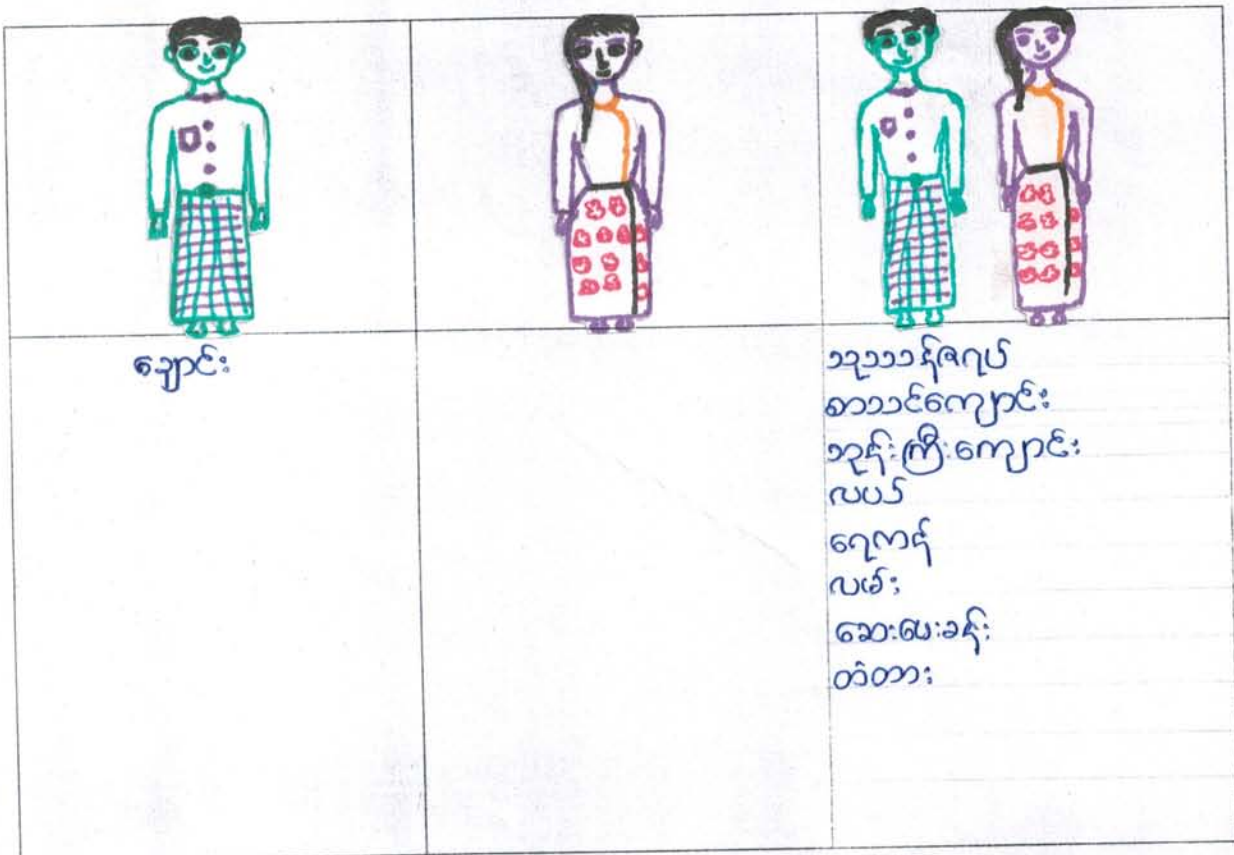 ချောင်း
သုသာန်ဇရပ်
စာသင်ကျောင်း
ဘုန်းကြီးကျောင်း
လယ်
ရေကန်
လမ်း
ဆေးပေးခန်း
တံတား